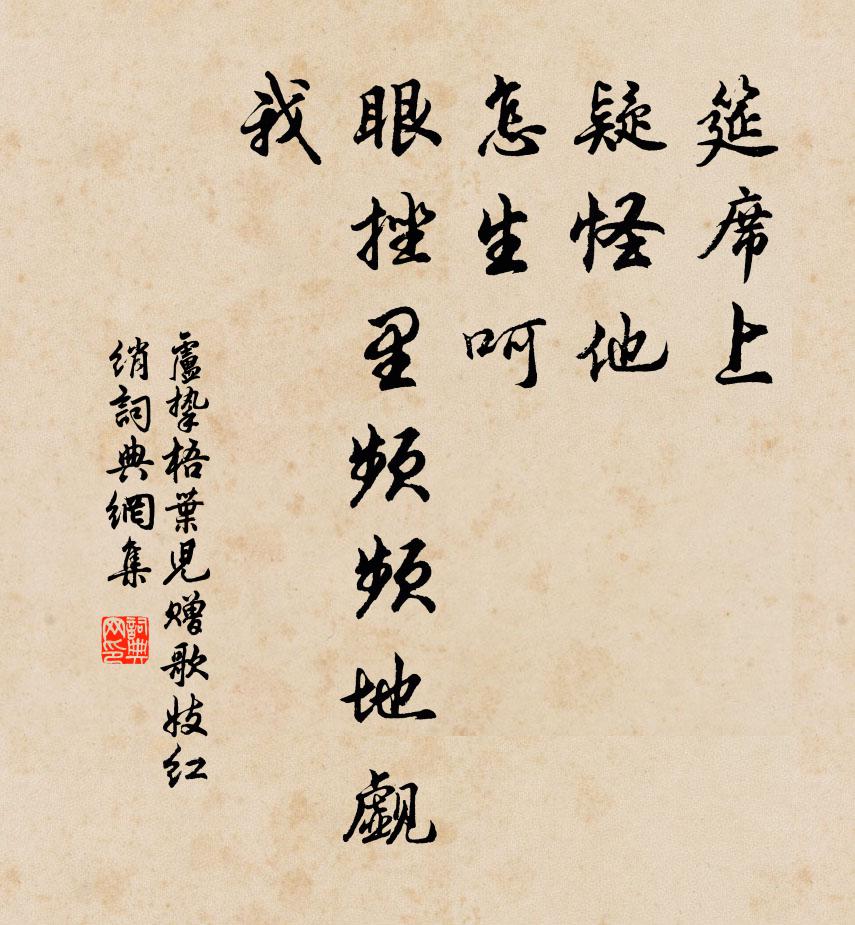 筵席上
疑怪他
怎生呵
眼挫里频频地觑
我
盧挚梧葉児赠歌妓红
绡詞典網集
詞典网印